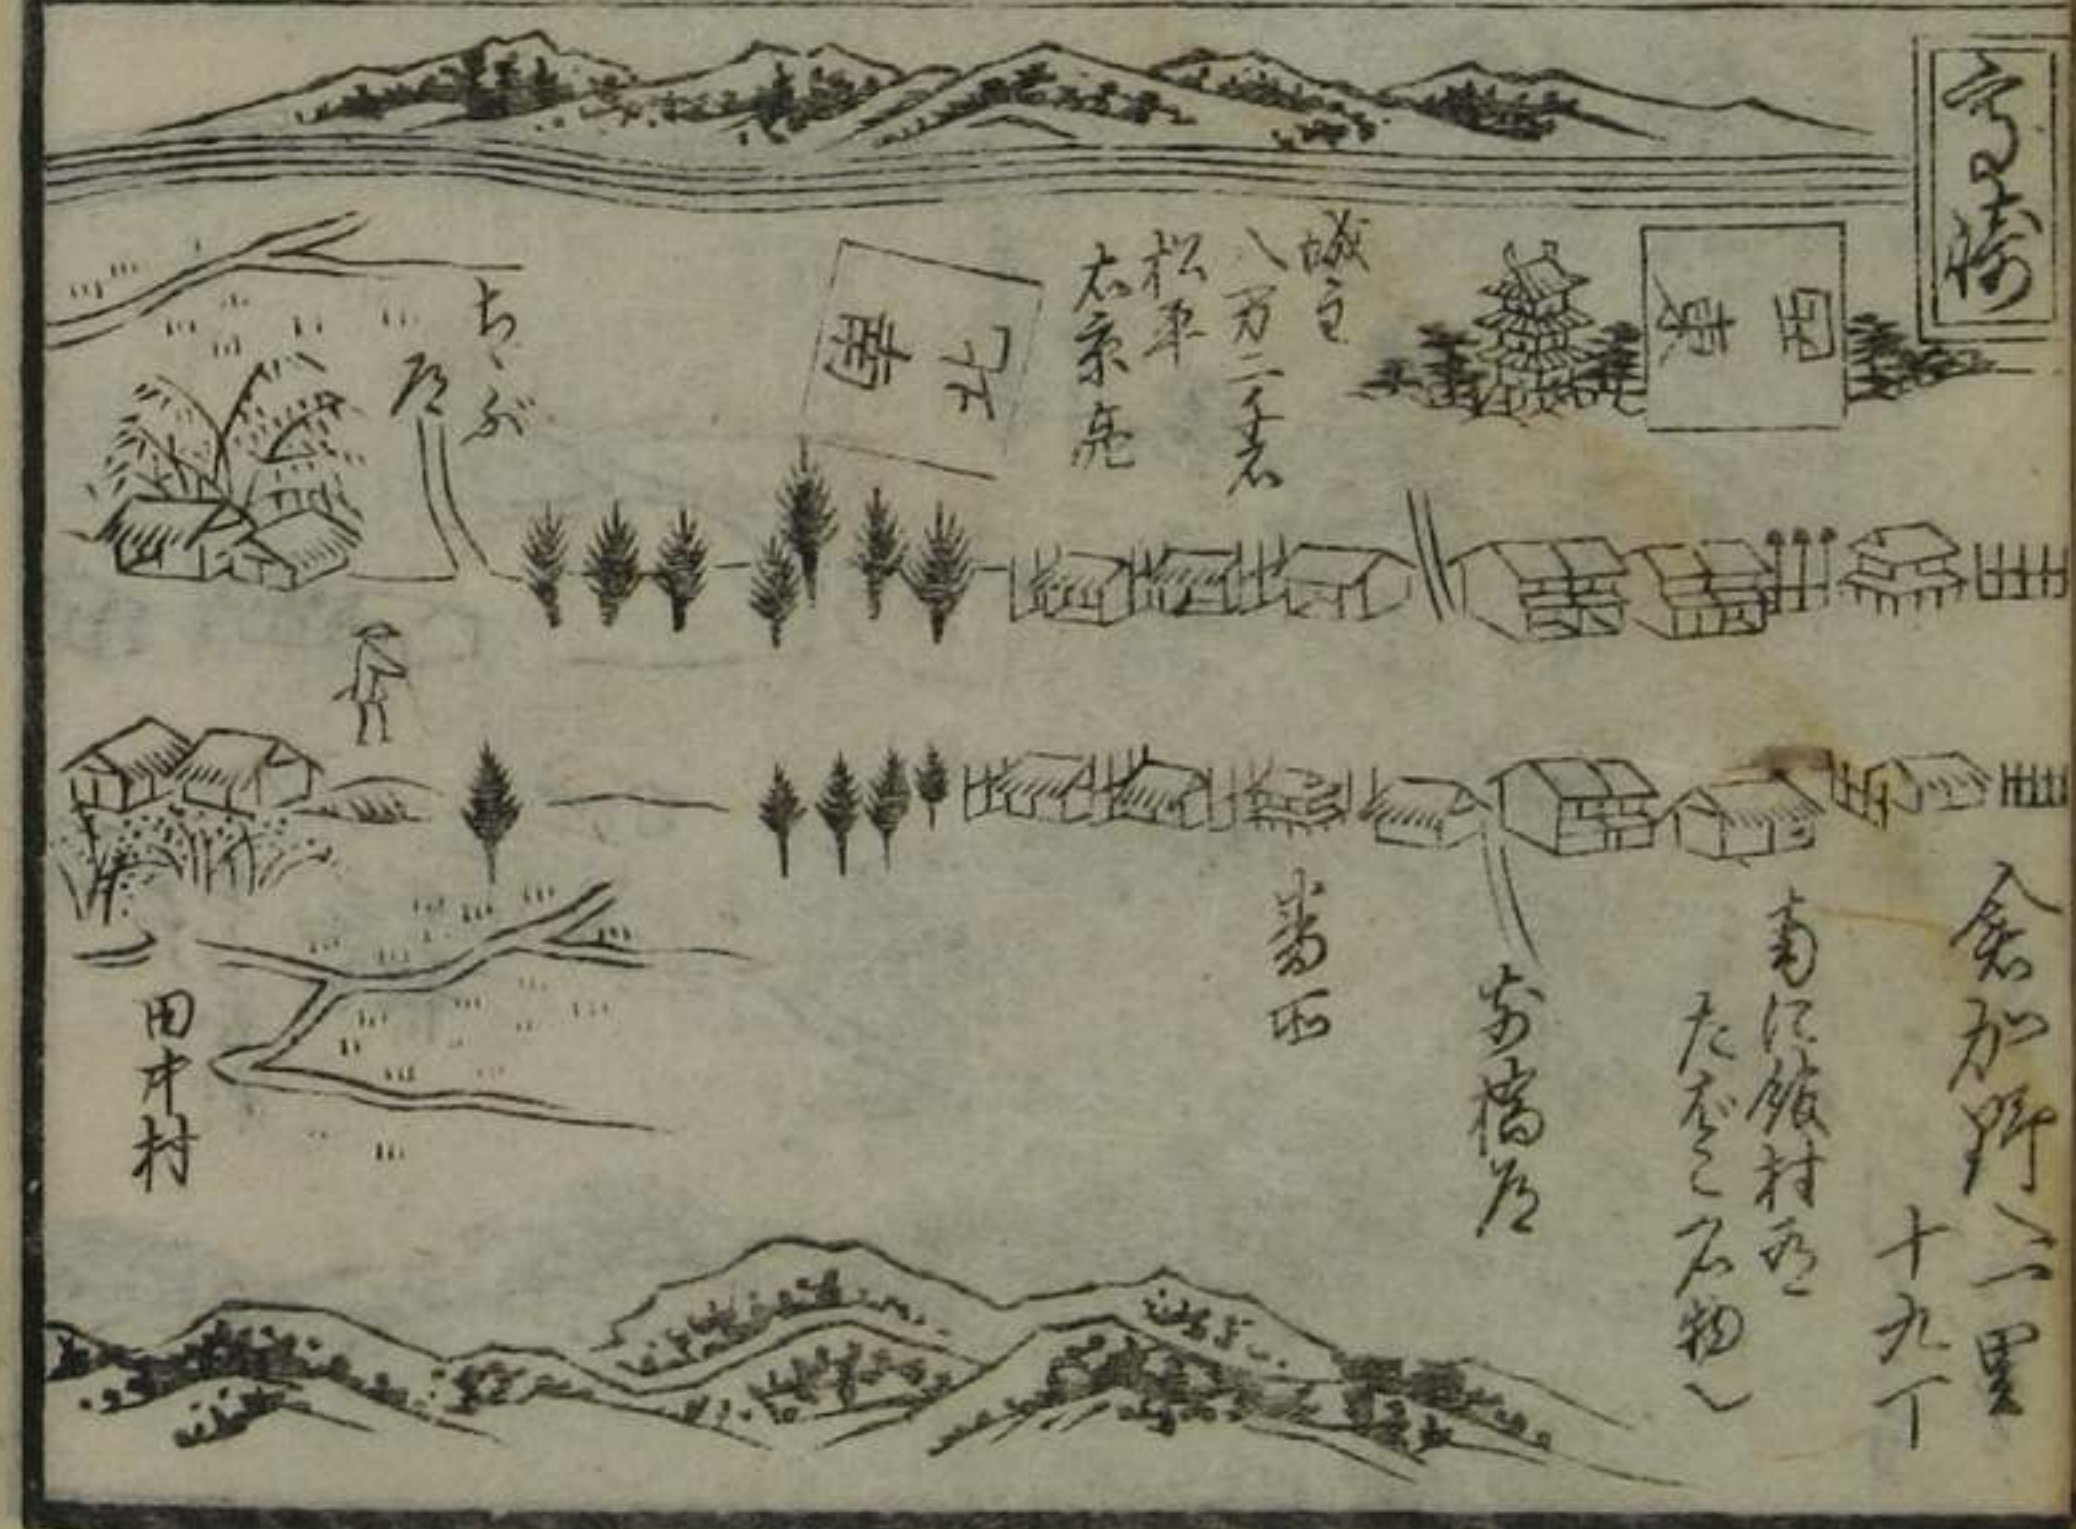 高崎
西
東
城主
八万二千石
松平
右京亮
北
南
ちゝぶ
道
倉加野へ一里
十九丁
南に館村有
たばこ名物也
前橋道
番所
田中村